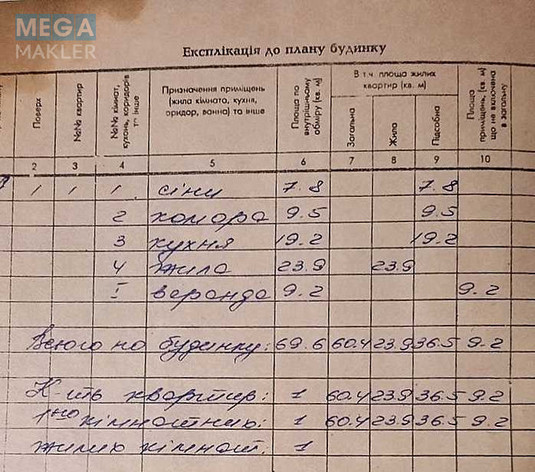 MEGA
MAKLER
Експлікація до плану будинку
Поверх
№№ квартир
№№ кімнат, кухонь, коридорів та інше
Призначення приміщень (жила кімната, кухня, оридор, ванна) та інше
Площа по внутрішньому обміру (кв. м)
В т.ч. площа жилих квартир (кв. м)
Загальна
Жила
Підсобна
Площа приміщень, (кв. м) що не включена в загальну
2 3 4 5 6 7 8 9 10
1 1 1 сіни 7.8 7.8
2 комора 9.5 9.5
3 кухня 19.2 19.2
4 жила 23.9 23.9
I веранда 9.2 9.2
Всього по будинку: 69.6 60.4 23.9 36.5 9.2
К-ть квартир: 1 60.4 23.9 36.5 9.2
1но кімнатних: 1 60.4 23.9 36.5 9.2
жилих кімнат: 1